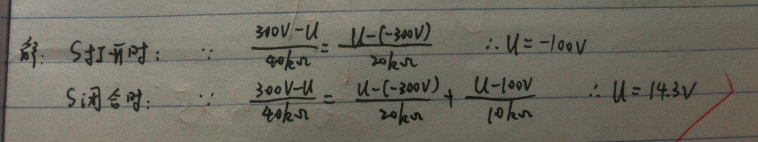 解: S打开时: ∵ (300V-U)/40kΩ = (U-(-300V))/20kΩ ∴U=-100V
S闭合时: ∵ (300V-U)/40kΩ = (U-(-300V))/20kΩ + (U-100V)/10kΩ ∴ U=14.3V